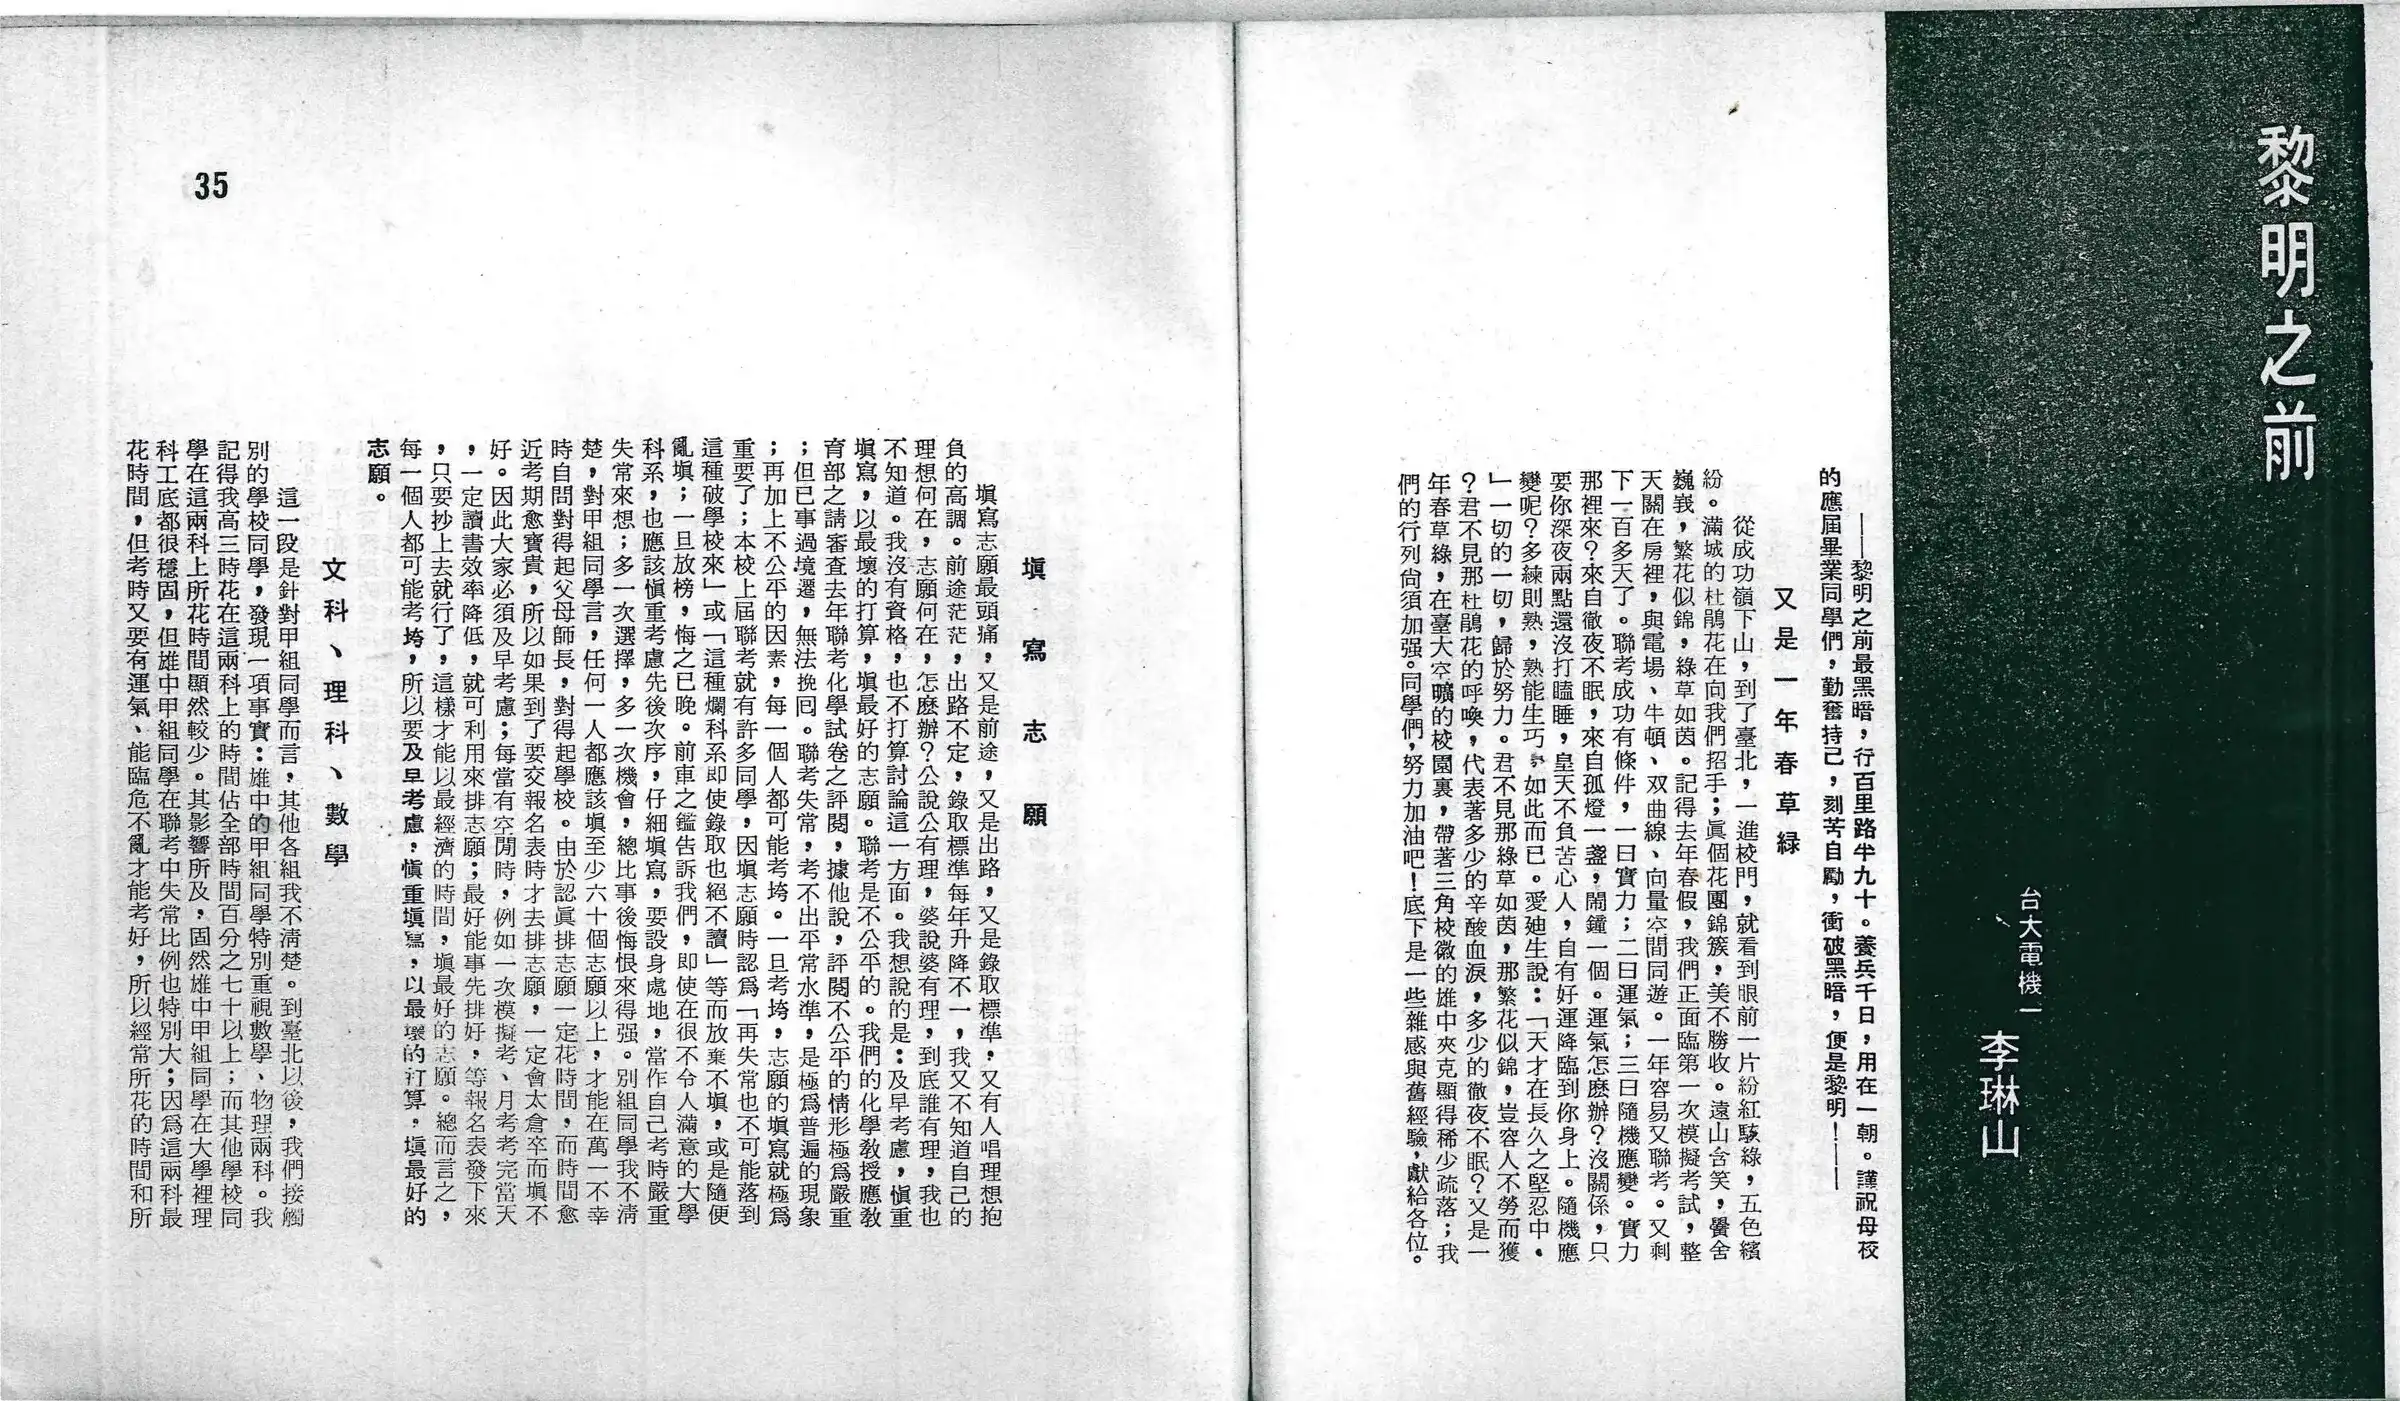 黎明之前
台大電機一
李琳山
——黎明之前最黑暗，行百里路半九十。養兵千日，用在一朝。謹祝母校
的應屆畢業同學們，勤奮持己，刻苦自勵，衝破黑暗，便是黎明！——
又是一年春草綠
從成功嶺下山，到了臺北，一進校門，就看到眼前一片紛紅駭綠，五色繽
紛。滿城的杜鵑花在向我們招手；眞個花團錦簇，美不勝收。遠山含笑，黌舍
巍峩，繁花似錦，綠草如茵。記得去年春假，我們正面臨第一次模擬考試，整
天關在房裡，與電場、牛頓、双曲線、向量空間同遊。一年容易又聯考。又剩
下一百多天了。聯考成功有條件，一曰實力；二曰運氣；三曰隨機應變。實力
那裡來？來自徹夜不眠，來自孤燈一盞，鬧鐘一個。運氣怎麼辦？沒關係，只
要你深夜兩點還沒打瞌睡，皇天不負苦心人，自有好運降臨到你身上。隨機應
變呢？多練則熟，熟能生巧，如此而已。愛廸生說：「天才在長久之堅忍中。
」一切的一切，歸於努力。君不見那綠草如茵，那繁花似錦，豈容人不勞而獲
？君不見那杜鵑花的呼喚，代表著多少的辛酸血淚，多少的徹夜不眠？又是一
年春草綠，在臺大空曠的校園裏，帶著三角校徽的雄中夾克顯得稀少疏落；我
們的行列尙須加强。同學們，努力加油吧！底下是一些雜感與舊經驗，獻給各位。
塡寫志願
塡寫志願最頭痛，又是前途，又是出路，又是錄取標準，又有人唱理想抱
負的高調。前途茫茫，出路不定，錄取標準每年升降不一，我又不知道自己的
理想何在，志願何在，怎麼辦？公說公有理，婆說婆有理，到底誰有理，我也
不知道。我沒有資格，也不打算討論這一方面。我想說的是：及早考慮，愼重
塡寫，以最壞的打算，塡最好的志願。聯考是不公平的。我們的化學教授應敎
育部之請審查去年聯考化學試卷之評閱，據他說，評閱不公平的情形極爲嚴重
；但已事過境遷，無法挽囘。聯考失常，考不出平常水準，是極爲普遍的現象
；再加上不公平的因素，每一個人都可能考垮。一旦考垮，志願的塡寫就極爲
重要了；本校上屆聯考就有許多同學，因塡志願時認爲「再失常也不可能落到
這種破學校來」或「這種爛科系即使錄取也絕不讀」等而放棄不塡，或是隨便
亂塡；一旦放榜，悔之已晚。前車之鑑告訴我們，即使在很不令人滿意的大學
科系，也應該愼重考慮先後次序，仔細塡寫，要設身處地，當作自己考時嚴重
失常來想；多一次選擇，多一次機會，總比事後悔恨來得强。別組同學我不淸
楚，對甲組同學言，任何一人都應該塡至少六十個志願以上，才能在萬一不幸
時自問對得起父母師長，對得起學校。由於認眞排志願一定花時間，而時間愈
近考期愈寶貴，所以如果到了要交報名表時才去排志願，一定會太倉卒而塡不
好。因此大家必須及早考慮；每當有空閒時，例如一次模擬考、月考考完當天
，一定讀書效率降低，就可利用來排志願；最好能事先排好，等報名表發下來
，只要抄上去就行了，這樣才能以最經濟的時間，塡最好的志願。總而言之，
每一個人都可能考垮，所以要及早考慮，愼重塡寫，以最壞的打算，塡最好的
志願。
文科、理科、數學
這一段是針對甲組同學而言，其他各組我不淸楚。到臺北以後，我們接觸
別的學校同學，發現一項事實：雄中的甲組同學特別重視數學、物理兩科。我
記得我高三時花在這兩科上的時間佔全部時間百分之七十以上；而其他學校同
學在這兩科上所花時間顯然較少。其影響所及，固然雄中甲組同學在大學裡理
科工底都很穩固，但雄中甲組同學在聯考中失常比例也特別大；因爲這兩科最
花時間，但考時又要有運氣、能臨危不亂才能考好，所以經常所花的時間和所
35